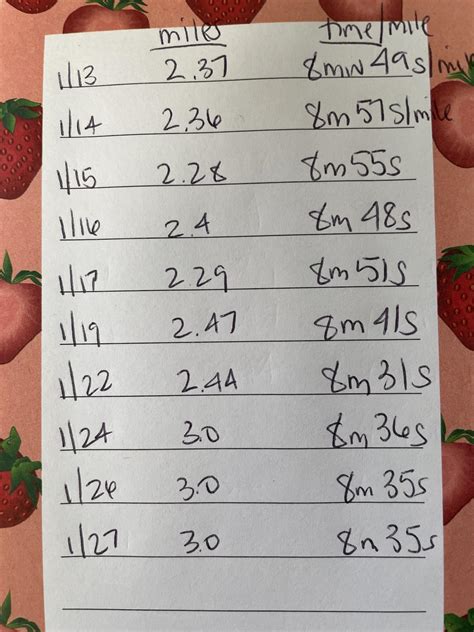 miles time/mile
1/13 2.37 8min 49s/mile
1/14 2.36 8m 57s/mile
1/15 2.28 8m 55s
1/16 2.4 8m 48s
1/17 2.29 8m 51s
1/19 2.47 8m 41s
1/22 2.44 8m 31s
1/24 3.0 8m 36s
1/26 3.0 8m 35s
1/27 3.0 8m 35s